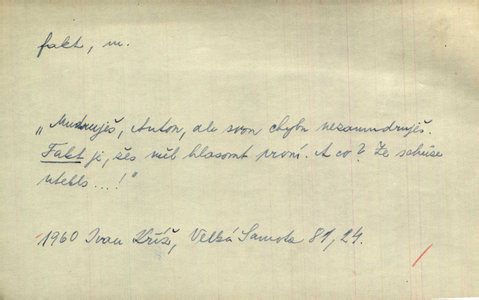 fakt, m.
„Mudruješ, Anton, ale svou chybu nezamudruješ.
Fakt je, žes měl hlasovat první. A co? Ze schůze
utekls...!"
1960 Ivan Kříž, Velká Samota 81, 24.